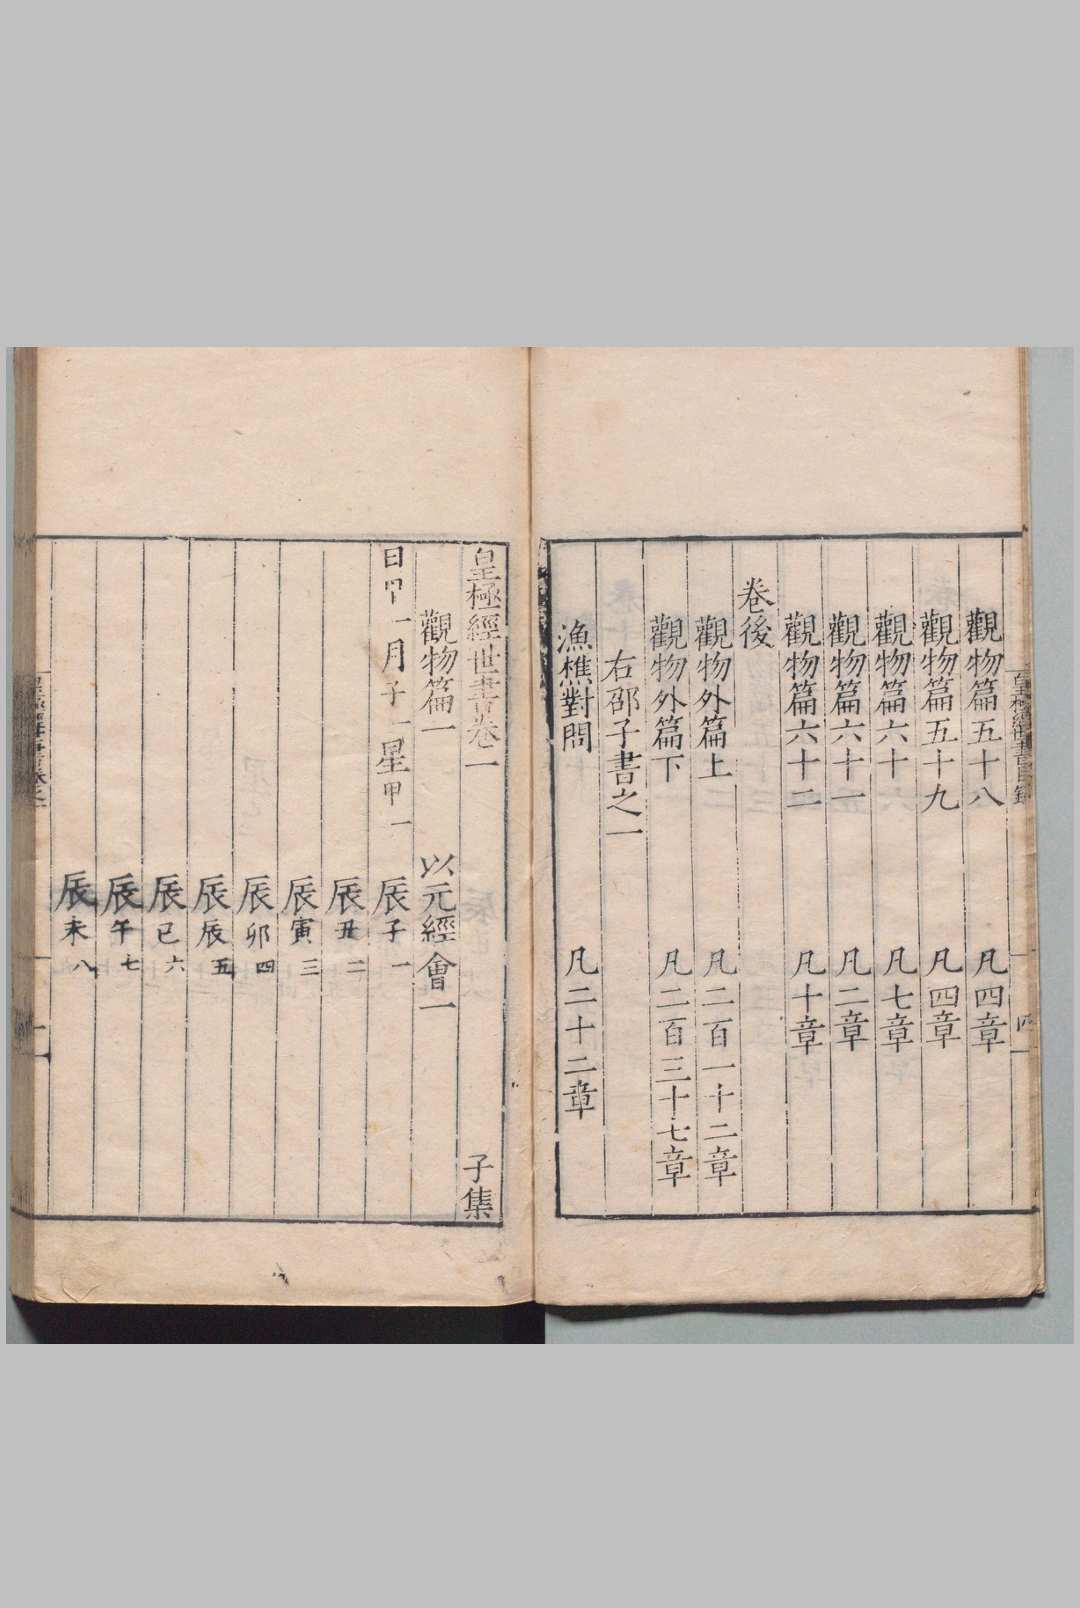 觀物篇五十八 凡四章
觀物篇五十九 凡四章
觀物篇六十 凡七章
觀物篇六十一 凡二章
觀物篇六十二 凡十章
卷後
觀物外篇上 凡二百一十二章
觀物外篇下 凡二百三十七章
右邵子書之一
漁樵對問 凡二十二章
皇極經世書卷一 子集
觀物篇一 以元經會一
日甲一月子一星甲一 辰子一
辰丑二
辰寅三
辰卯四
辰辰五
辰巳六
辰午七
辰未八